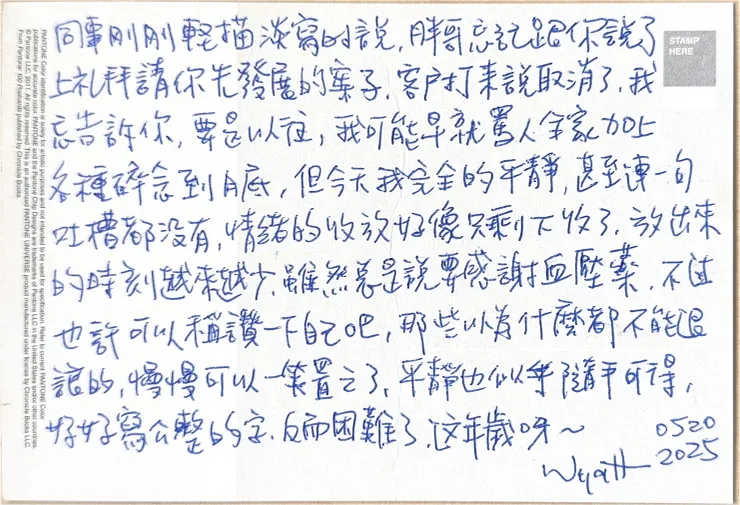 同事剛剛輕描淡寫的說，胖哥忘記跟你說了
上礼拜請你先發展的案子，客戶打来說取消了，我
忘告訴你，要是以往，我可能早就罵人全家加上
各種碎念到月底，但今天我完全的平靜，甚至連一句
吐槽都没有，情緒的收放好像只剩下收了，放出來
的時刻越来越少，雖然总是說要感謝血壓藥，不过
也許可以稱讚一下自己吧，那些以為什麼都不能退
讓的，慢慢可以一笑置之了，平靜也似乎隨手可得，
好好寫公整的字，反而困難了，这年歲呀～
0520
2025
Wyatt
STAMP
HERE
PANTONE Color identification is solely for artistic purposes and not intended to be used for specification. Refer to current PANTONE Color
publications for accurate color. PANTONE and the Pantone Chip Designs are trademarks of Pantone LLC in the United States and/or other countries.
© Pantone LLC, 2011. All rights reserved. This is an authorized PANTONE UNIVERSE product manufactured under license by Chronicle Books LLC.
From Pantone: 100 Postcards published by Chronicle Books.